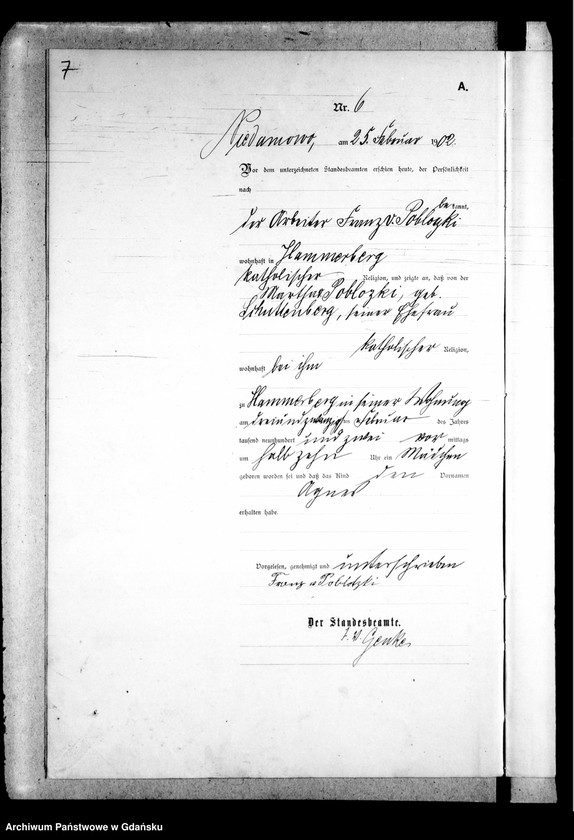 7
A.
Nr. 6
Niedamowo, am 25. Februar 1902.
Vor dem unterzeichneten Standesbeamten erschien heute, der Persönlichkeit
nach
be kannt,
der Arbeiter Franz v. Poblozki
wohnhaft in Hammerberg
katholischer Religion, und zeigte an, daß von der
Martha Poblozki, geb.
seiner Ehefrau
katholischer Religion,
wohnhaft bei ihm
zu Hammerberg in seiner Wohnung
am dreiundzwanzigsten Februar des Jahres
tausend neunhundert und zwei vor mittags
um halb zehn Uhr ein Mädchen
geboren worden sei und daß das Kind den Vornamen
Agnes
erhalten habe.
Vorgelesen, genehmigt und unterschrieben
Franz v Poblotzki
Der Standesbeamte.
Archiwum Państwowe w Gdańsku